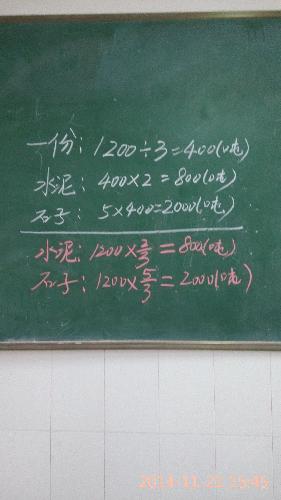 一份：1200÷3=400(吨)
水泥：400×2=800(吨)
石子：5×400=2000(吨)
水泥：1200×2/3=800(吨)
石子：1200×5/3=2000(吨)
2014.11.21 15:45